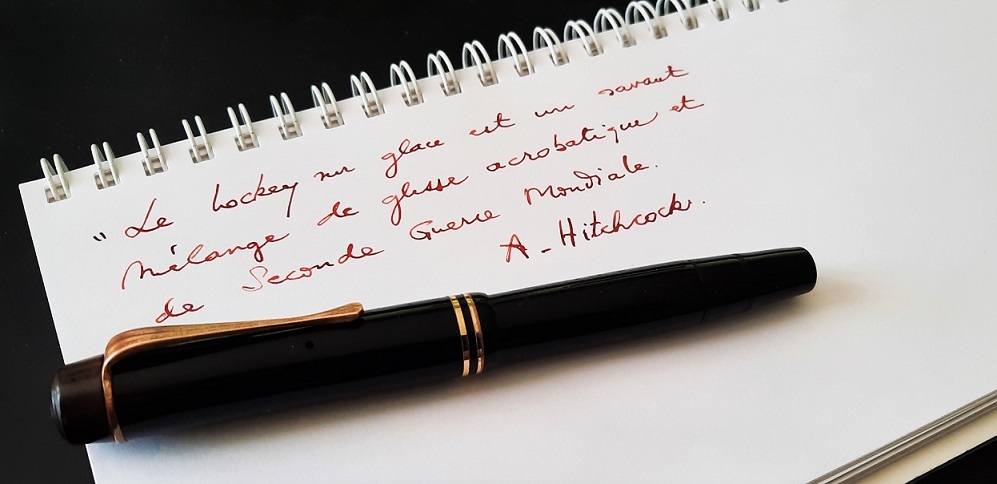 " Le hockey sur glace est un savant
mélange de glisse acrobatique et
de Seconde Guerre Mondiale.
A. Hitchcock.